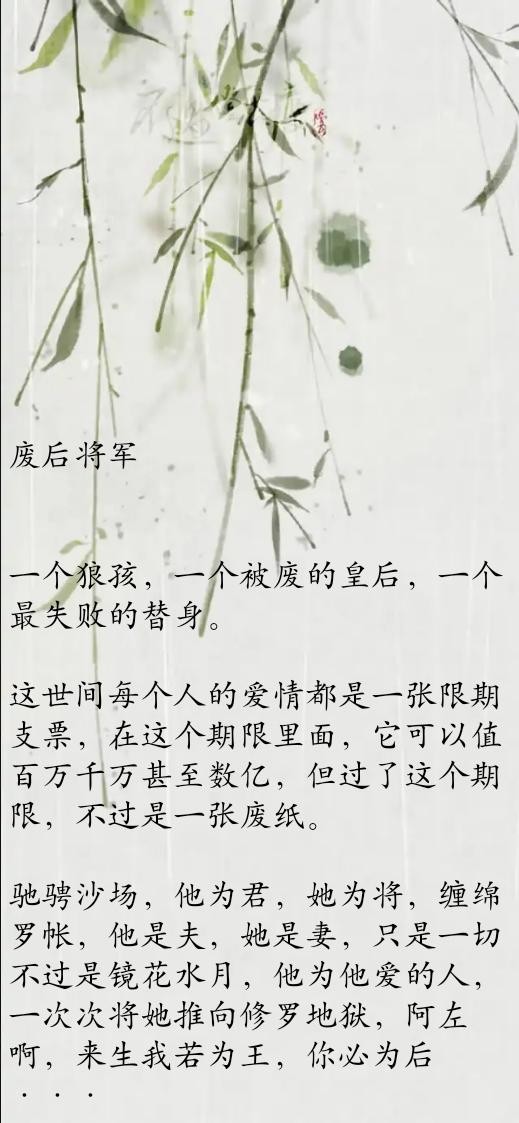 废后将军
一个狼孩，一个被废的皇后，一个
最失败的替身。
这世间每个人的爱情都是一张限期
支票，在这个期限里面，它可以值
百万千万甚至数亿，但过了这个期
限，不过是一张废纸。
驰骋沙场，他为君，她为将，缠绵
罗帐，他是夫，她是妻，只是一切
不过是镜花水月，他为他爱的人，
一次次将她推向修罗地狱，阿左
啊，来生我若为王，你必为后
···